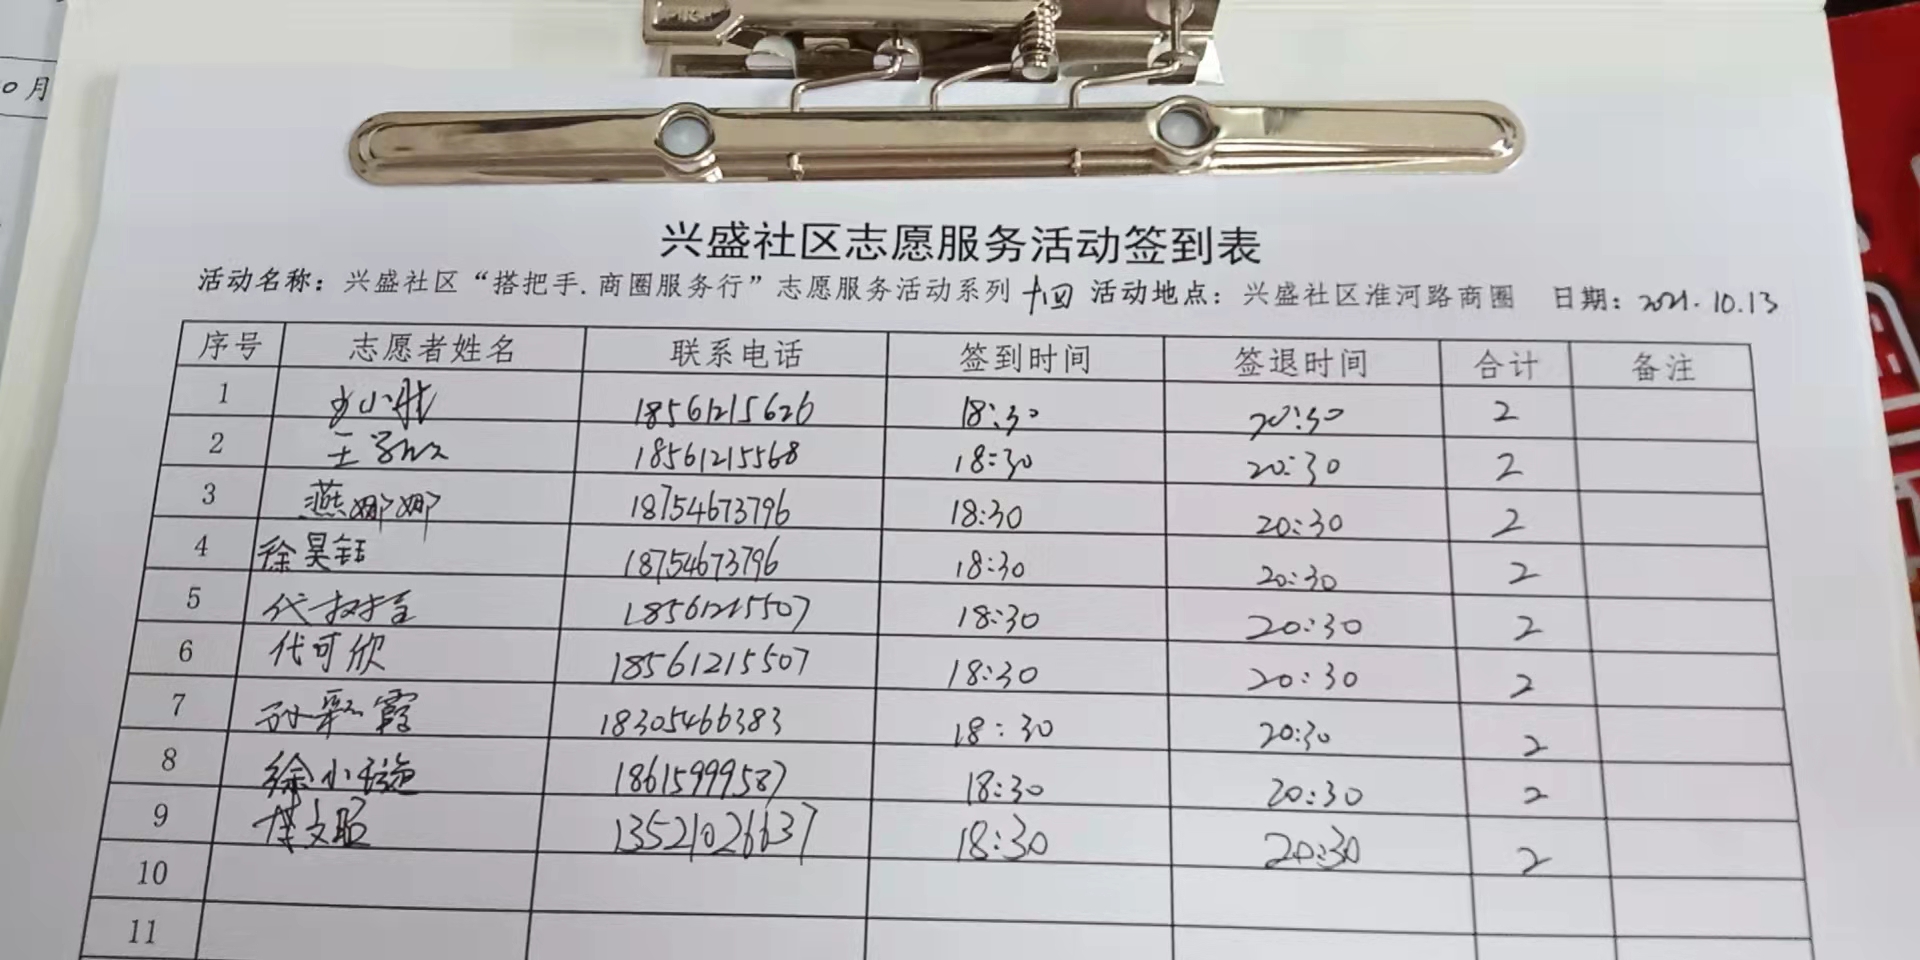 0月
兴盛社区志愿服务活动签到表
活动名称：兴盛社区“搭把手.商圈服务行”志愿服务活动系列十四 活动地点：兴盛社区淮河路商圈 日期：2021.10.13
序号 志愿者姓名 联系电话 签到时间 签退时间 合计 备注
1 18561215626 18:30 20:30 2
2 王 18561215568 18:30 20:30 2
3 燕娜娜 18754673796 18:30 20:30 2
4 徐昊钰 18754673796 18:30 20:30 2
5 代 18561215507 18:30 20:30 2
6 代可欣 18561215507 18:30 20:30 2
7 孙彩霞 18305466383 18:30 20:30 2
8 徐小璇 18615999587 18:30 20:30 2
9 13521026637 18:30 20:30 2
10
11